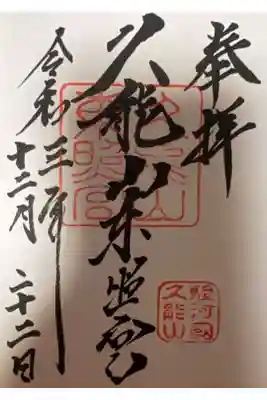 奉拝
久能山東照宮
久能山
東照宮
駿河國
久能山
令和三年
十二月二十二日